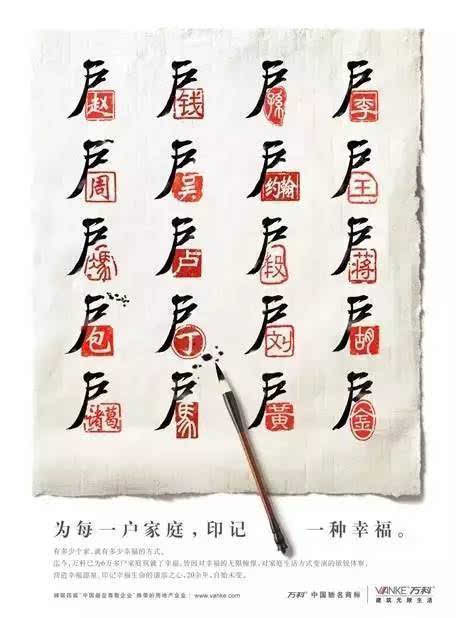 户赵 户钱 户孫 户李
户周 户吴 户约翰 户王
户馮 户卢 户段 户蒋
户包 户丁 户刘 户胡
户诸葛 户馬 户黃 户金
为每一户家庭，印记 一种幸福。
有多少个家，就有多少幸福的方式。
迄今，万科已为6万多户家庭筑就了幸福。皆因对幸福的无限憧憬，对家庭生活方式变迁的敏锐体察，
营造幸福部屋，印记幸福生命的谦恭之心，20余年，自始未变。
蝉联四届“中国最受尊敬企业”殊荣的房地产业 | www.vanke.com
万科 中国驰名商标
VANKE 万科
建筑无限生活